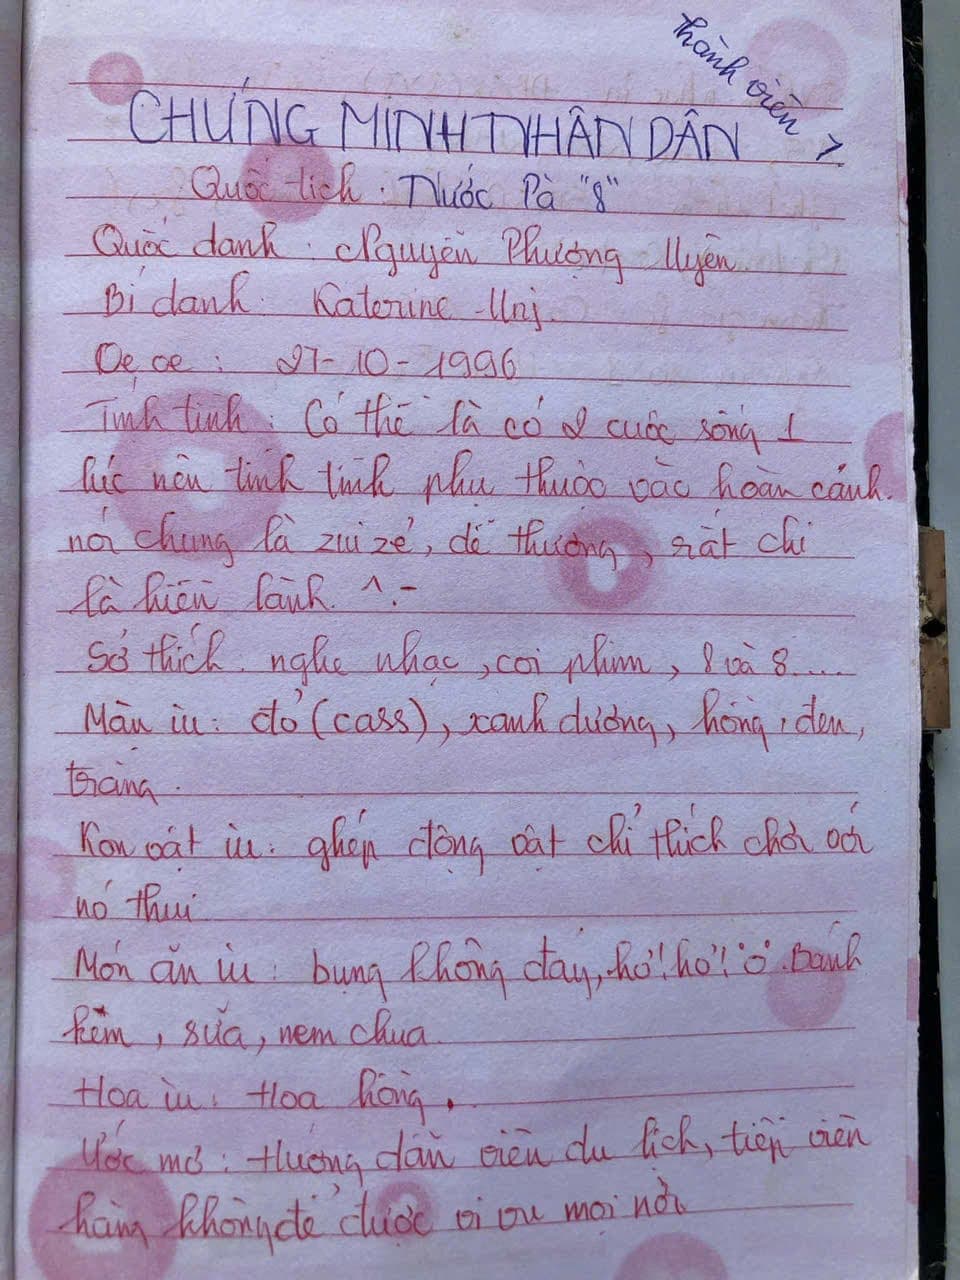 thành viên >
CHỨNG MINH NHÂN DÂN
Quốc tịch : Nước Pà "8"
Quốc danh : Nguyễn Phượng Uyên
Bí danh : Katerine Uni
Oe oe : 27-10-1996
Tính tình : Có thể là có 2 cuộc sống 1
lúc nên tính tình phụ thuộc vào hoàn cảnh.
nói chung là zui zẻ, dễ thương, rất chi
là hiền lành. ^.-
Sở thích : nghe nhạc, coi phim, 8 và 8....
Màu iu : đỏ (cass), xanh dương, hồng, đen,
trắng.
Kon vật iu : ghép động vật chỉ thích chơi với
nó thui
Món ăn iu : bụng không đáy, hơ! hơ! ở. Bánh
kem, sữa, nem chua.
Hoa iu : Hoa hồng.
Ước mơ : Hướng dẫn viên du lịch, tiếp viên
hàng không để được vi vu mọi nơi